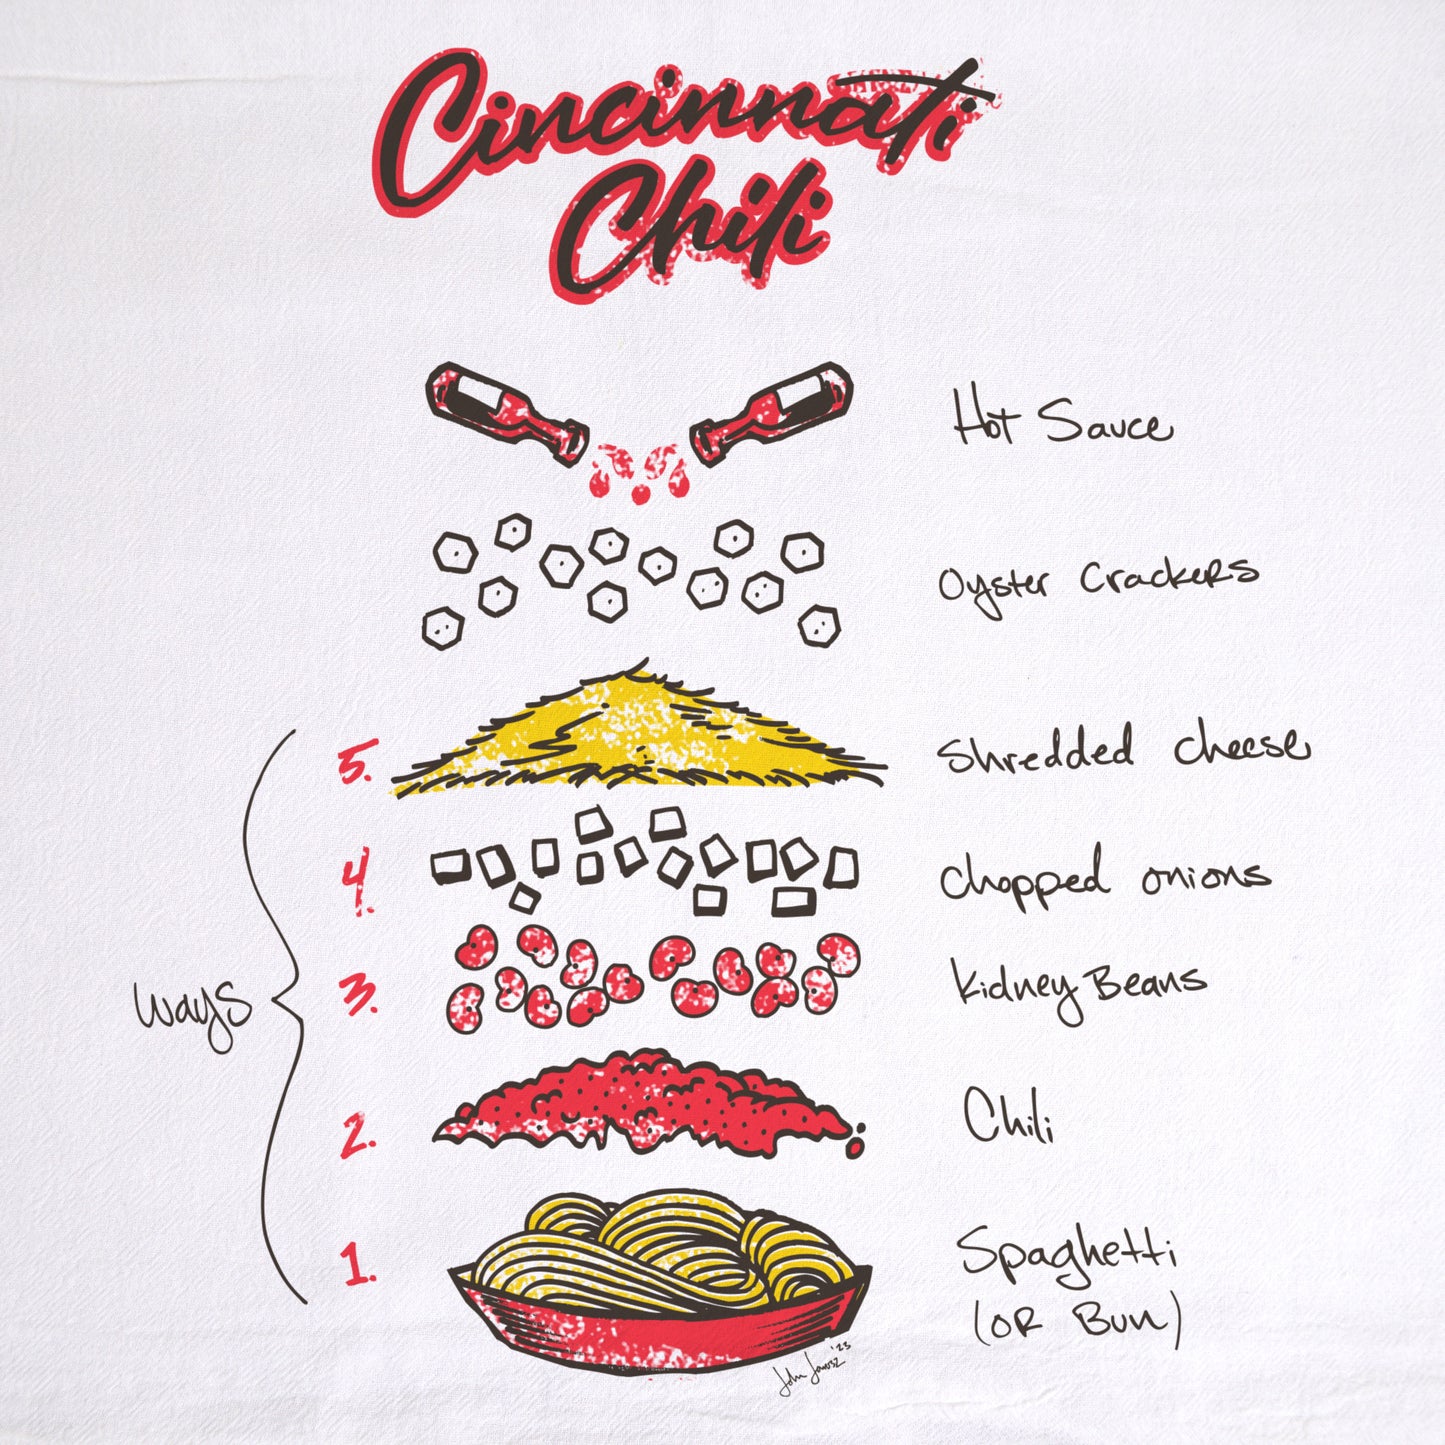 Cincinnati
Chili
Hot Sauce
Oyster Crackers
5. Shredded cheese
4. Chopped onions
ways
3. Kidney Beans
2. Chili
1. Spaghetti
(OR Bun)
John Jarosz '23